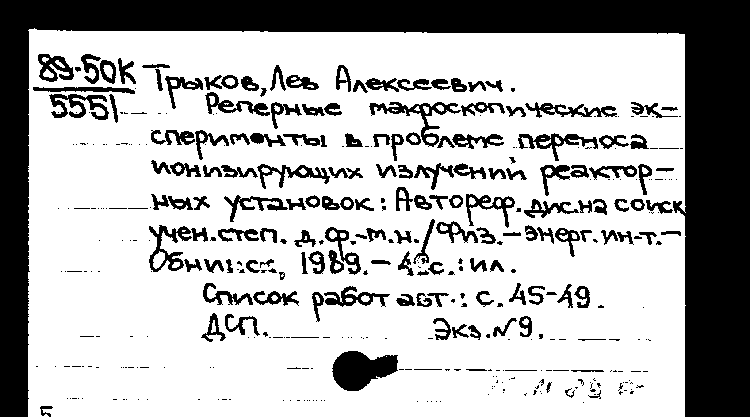 89-50К Трыков, Лев Алексеевич.
5551 Реперные макроскопические эк-
сперименты в проблеме переноса
ионизирующих излучений реактор-
ных установок: Автореф. дис. на соиск
учен. степ. д.ф.-м.н./Физ.-энерг. ин-т.-
Обнинск, 1989.- с.: ил.
Список работ авт.: с. 45-49.
ДСП. Экз. №9.
5